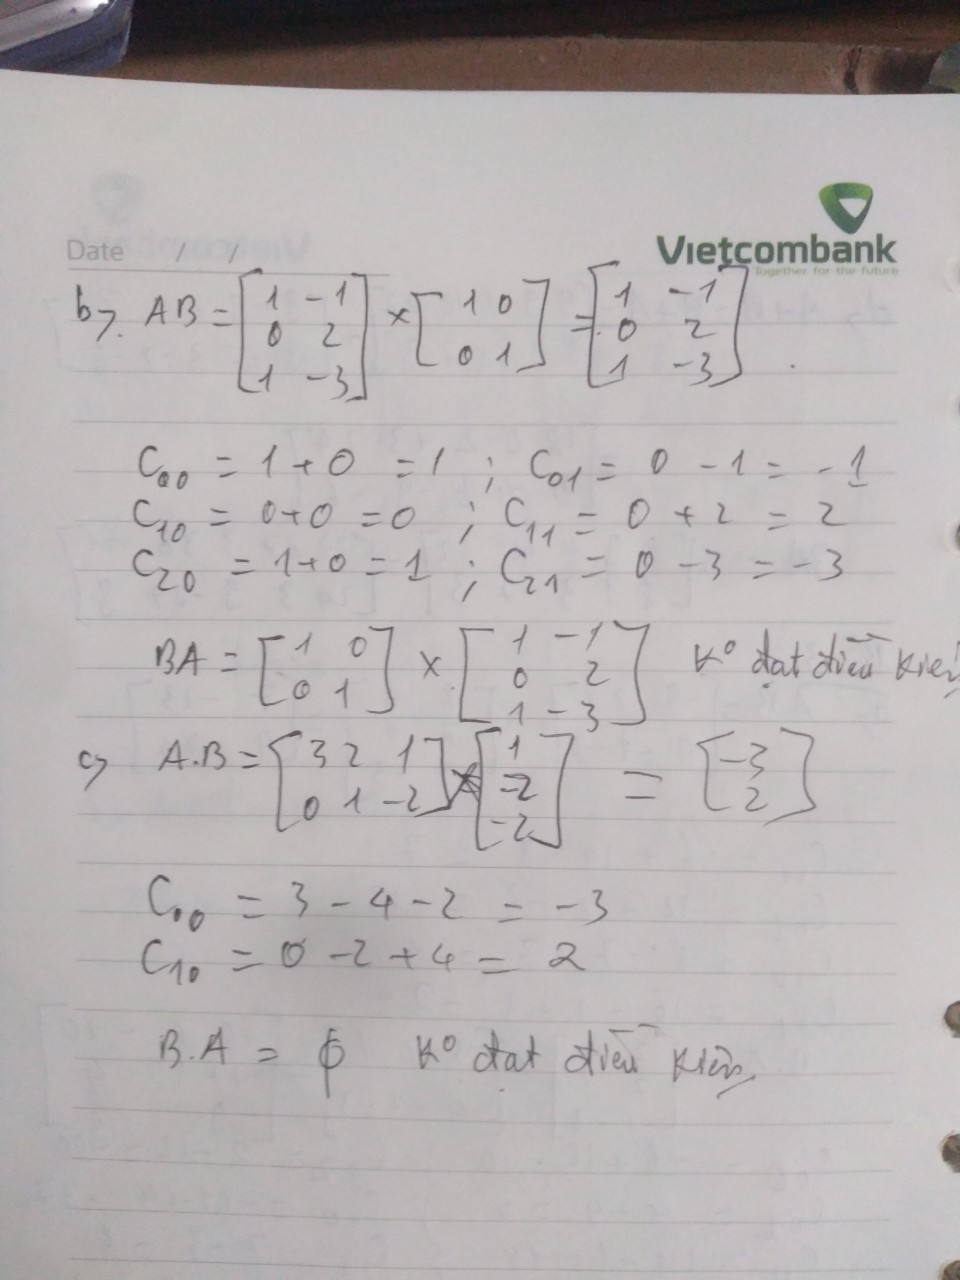 Date / /
Vietcombank
Together for the future
b) AB = [1 -1; 0 2; 1 -3] × [1 0; 0 1] = [1 -1; 0 2; 1 -3]
C00 = 1 + 0 = 1 ; C01 = 0 - 1 = -1
C10 = 0+0 = 0 ; C11 = 0 + 2 = 2
C20 = 1+0 = 1 ; C21 = 0 - 3 = -3
BA = [1 0; 0 1] × [1 -1; 0 2; 1 -3] Ko đạt điều kiện
c) A.B = [3 2 1; 0 1 -2] × [1; -2; -2] = [-3; 2]
C00 = 3 - 4 - 2 = -3
C10 = 0 - 2 + 4 = 2
B.A = ϕ Ko đạt điều kiện